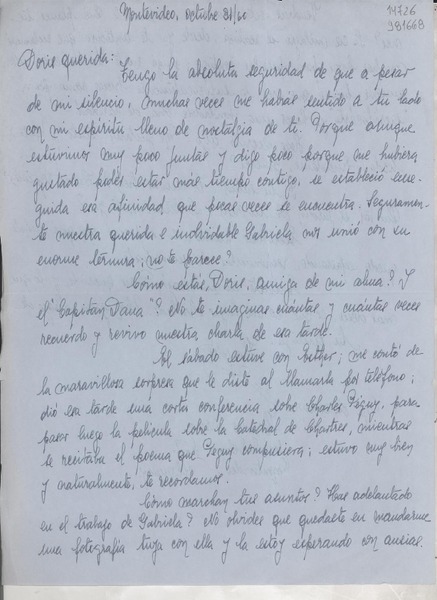 11726
981668
Montevideo, octubre 31/60
Doris querida:
Tengo la absoluta seguridad de que a pesar
de mi silencio, muchas veces me habrás sentido a tu lado
con mi espíritu lleno de nostalgia de ti. Porque aunque
estuvimos muy poco juntas y digo poco porque me hubiera
gustado poder estar más tiempo contigo, se estableció ense-
guida esa afinidad que pocas veces se encuentra. Seguramen-
te nuestra querida e inolvidable Gabriela nos unió con su
enorme ternura; ¿no te parece?
¿Cómo estás, Doris, amiga de mi alma? Y
el "Capitán Dana"? No te imaginas cuántas y cuántas veces
recuerdo y revivo nuestra charla de esa tarde.
El sábado estuve con Esther; me contó de
la maravillosa sorpresa que le diste al llamarla por teléfono;
dió esa tarde una corta conferencia sobre Charles Péguy, para
pasar luego la película sobre la Catedral de Chartres, mientras
se recitaba el poema que Péguy compusiera; estuvo muy bien
y naturalmente, te recordamos.
¿Cómo marchan tus asuntos? ¿Has adelantado
en el trabajo de Gabriela? No olvides que quedaste en mandarme
una fotografía tuya con ella y la estoy esperando con ansias.